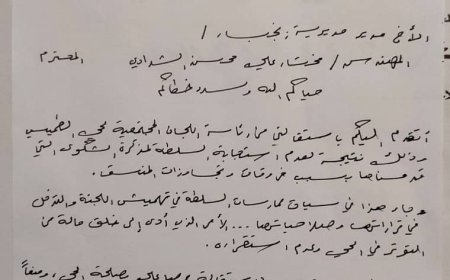 الأخ مدير مديرية زنجبار /
المهندس / مختار علي محسن الشدادي المحترم
حياكم الله وسدد خطاكم
أتقدم إليكم باستقالتي من رئاسة اللجان المجتمعية لحي الطميسي
وذلك نتيجة لعدم استجابة السلطة لمذكرة الشكوى التي
قدمناها بسبب خروقات وتجاوزات المنسق.
وجاء هذا في سياق ممارسات السلطة في تهميش اللجنة والتدخل
في قراراتها وصلاحياتها... الأمر الذي أدى إلى خلق حالة من
التوتر في الحي وعدم استقراره.
مصلحة الحي، ومنعاً